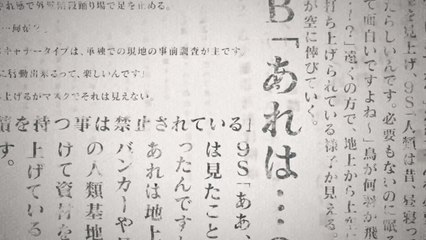 を見上げ、9S「人類は昔、昼寝っ
たらしいんです。必要もないのに眠
て面白いですよね～」鳥が何羽か飛
？」遠くの方で、地上から上空
打ち上げられている様子が見える。
が空に伸びていく。
B「あれは…
キャナータイプは、単独での現地の事前調査が主です。
に行動出来るって、楽しいんです」
上げるがマスクでそれは見えない。
禁止されている」9S「ああ、
は見たこと
ったんです
あれは地上
バンカーや
の人類基地
つけて資
上げている
す。